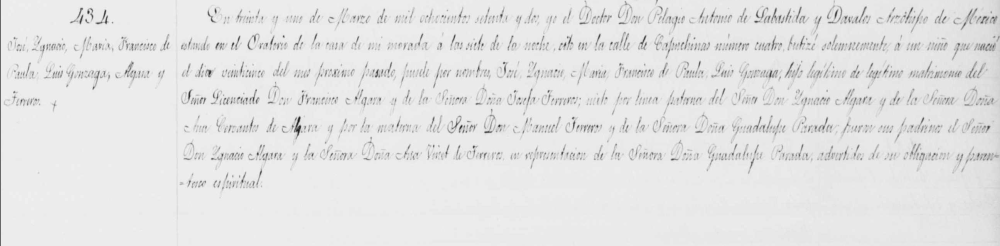 434.
José, Ygnacio, Maria, Francisco de
Paula, Luis Gonzaga, Algara y
Ferreros.
En treinta y uno de Marzo de mil ochocientos setenta y dos, yo el Doctor Don Pelagio Antonio de Labastida y Davalos Arzobispo de Mexico
estando en el Oratorio de la casa de mi morada á las siete de la noche, sito en la calle de Capuchinas número cuatro, bautizé solemnemente, á un niño que nació
el dia veinticinco del mes proximo pasado, puesele por nombres, José, Ygnacio, Maria, Francisco de Paula, Luis Gonzaga; hijo legítimo de legítimo matrimonio del
Señor Licenciado Don Francisco Algara y de la Señora Doña Josefa Ferreros; nieto por linea paterna del Señor Don Ygnacio Algara y de la Señora Doña
Ana Cervantes de Algara y por la materna del Señor Don Manuel Ferreros y de la Señora Doña Guadalupe Parada; fueron sus padrinos el Señor
Don Ygnacio Algara y la Señora Doña Ana de Ferreros, en representacion de la Señora Doña Guadalupe Parada; advertidos de su obligacion y paren-
-tesco espiritual.